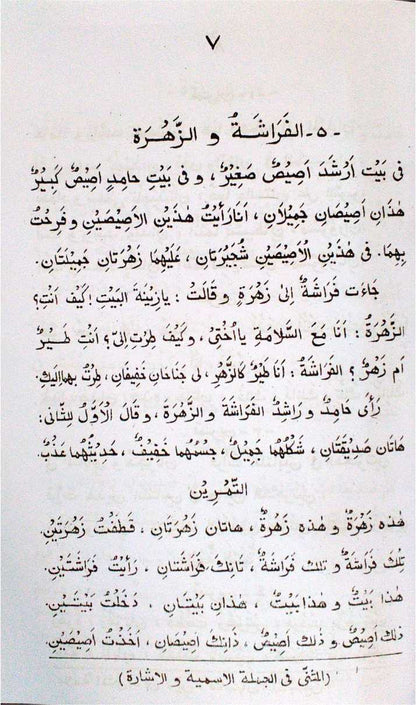 ٧
-٥- الفَرَاشَةُ و الزَّهْرَة
فى بَيْت اَرْشَدَ اَصِيْصٌ صَغِيْرٌ، و فى بَيْتِ حامدٍ اَصِيْصٌ كَبِيْرٌ
هٰذَانِ اَصِيْصَانِ جَمِيْلَانِ، اَنَا رَأَيْتُ هٰذَيْنِ الاَصِيْصَيْنِ و فَرِحْتُ
بِهِمَا. فى هٰذَيْنِ الاَصِيْصَيْنِ شُجَيْرَتَانِ، عَلَيْهِمَا زَهْرَتَانِ جَمِيْلَتَانِ.
جَاءَت فَرَاشَةٌ اِلىٰ زَهْرَةٍ و قَالَتْ : يازِيْنَةَ البَيْتِ! كَيْفَ اَنْتِ؟
الزَّهْرَةُ : اَنَا مَعَ السَّلَامَةِ يا اُخْتِىْ، و كَيْفَ طِرْتِ اِلىَّ؟ اَنْتِ طَيْرٌ
اَم زَهْرٌ؟ الفَرَاشَةُ : اَنَا طَيْرٌ كَالزَّهْرِ، لى جَنَاحَانِ خَفِيْفَانِ، طِرْتُ بِهِمَا اِلَيْكِ.
رَأى حَامِدٌ و رَاشِدٌ الفَرَاشَةَ و الزَّهْرَةَ، و قَالَ الاَوَّلُ لِلثَّانى :
هَاتَانِ صَدِيْقَتَانِ، شَكْلُهُمَا جَمِيْلٌ، جِسْمُهُمَا خَفِيْفٌ، حَدِيْثُهُمَا عَذْبٌ.
التَّمْرِيْن
هٰذه زَهْرَةٌ و هٰذه زَهْرَةٌ، هاتَانِ زَهْرَتَانِ، قَطَفْتُ زَهْرَتَيْنِ.
تِلْكَ فَرَاشَةٌ و تِلْكَ فَرَاشَةٌ، تَانِكَ فَرَاشَتَانِ، رَأَيْتُ فَرَاشَتَيْنِ.
هٰذا بَيْتٌ و هٰذا بَيْتٌ، هٰذَانِ بَيْتَانِ، دَخَلْتُ بَيْتَيْنِ.
ذٰلك اَصِيْصٌ و ذٰلك اَصِيْصٌ، ذَانِكَ اَصِيْصَانِ، اَخَذْتُ اَصِيْصَيْنِ.
(المثنّٰى فى الجملة الاسمية و الاشارة)